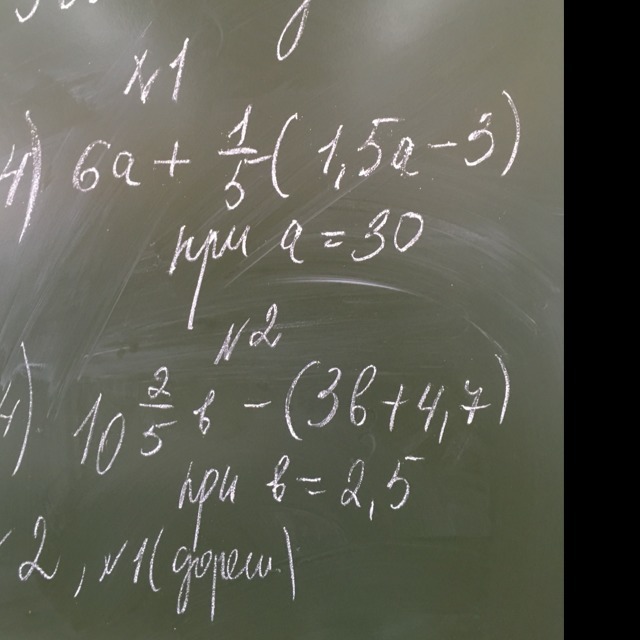 №1
4) 6a + 1/5 (1,5a - 5)
при a = 30
№2
4) 10 2/5 в - (3в + 4,7)
при в = 2,5
№2, №1 (дореш.)